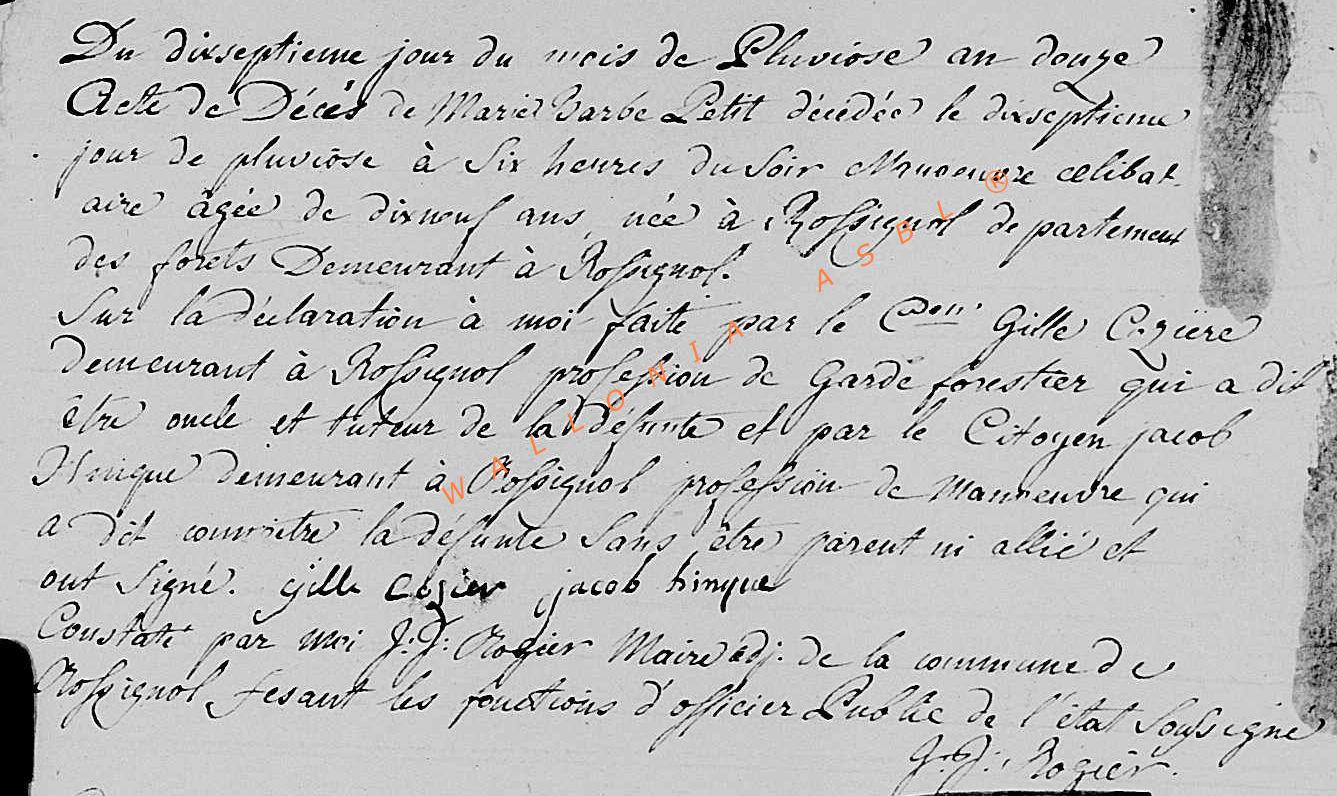 Du dixseptieme jour du mois de Pluviose an douze
Acte de Décés de Marie Barbe Petit décédée le dixseptieme
jour de pluviose à Six heures du Soir Manoeuvre celibat-
aire âgée de dixneuf ans, née à Rossignol departement
des forets Demeurant à Rossignol.
Sur la déclaration à moi faite par le Cyen Gille Cozière
demeurant à Rossignol profession de Garde forestier qui a dit
être oncle et tuteur de la défunte et par le Citoyen jacob
Hinque demeurant à Rossignol profession de Manoeuvre qui
a dit connoitre la défunte Sans être parent ni allié et
ont Signé. Gille Cozier jacob hinque
Constaté par Moi J: J: Rozier Maire adj. de la commune de
Rossignol fesant les fonctions d'officier Public de l'état Soussigné
J: J: Rozier.
WALLONIA ASBL ®